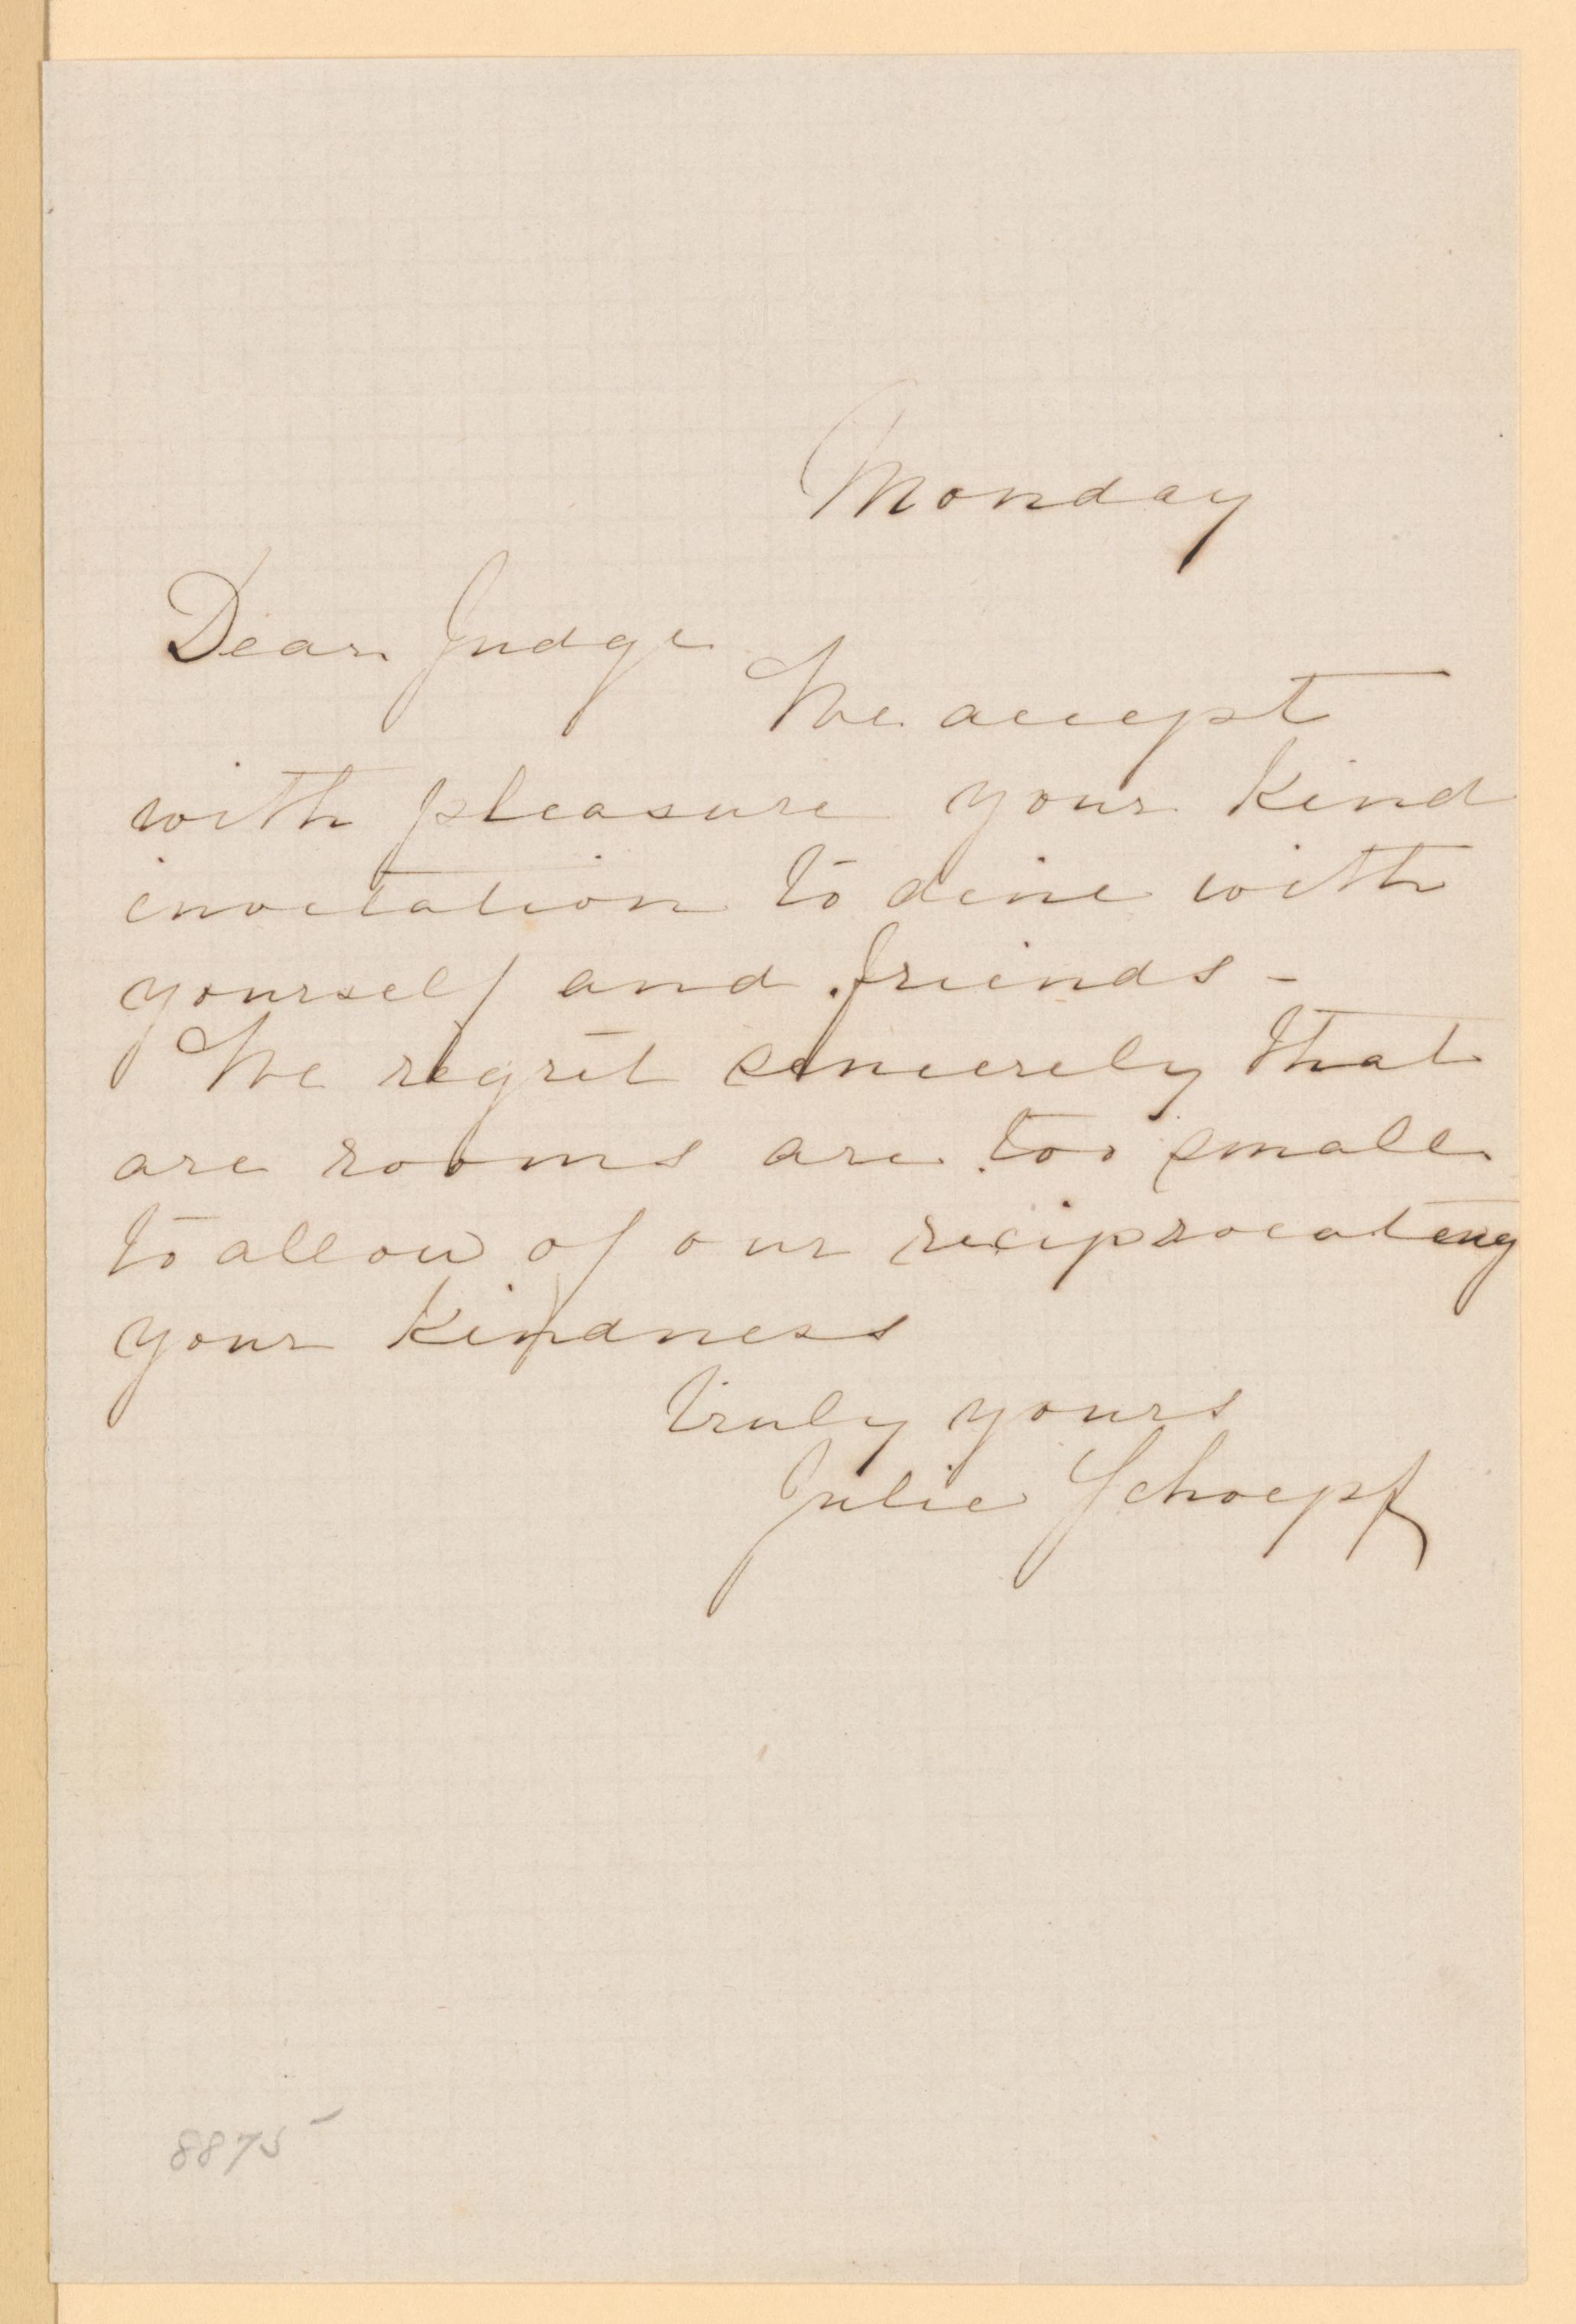 Monday
Dear Judge
We accept
with pleasure your kind
invitation to dine with
yourself and friends -
We regret sincerely that
are rooms are too small
to allow of our reciprocating
your kindness
truly yours
Julie Schoepf
8875